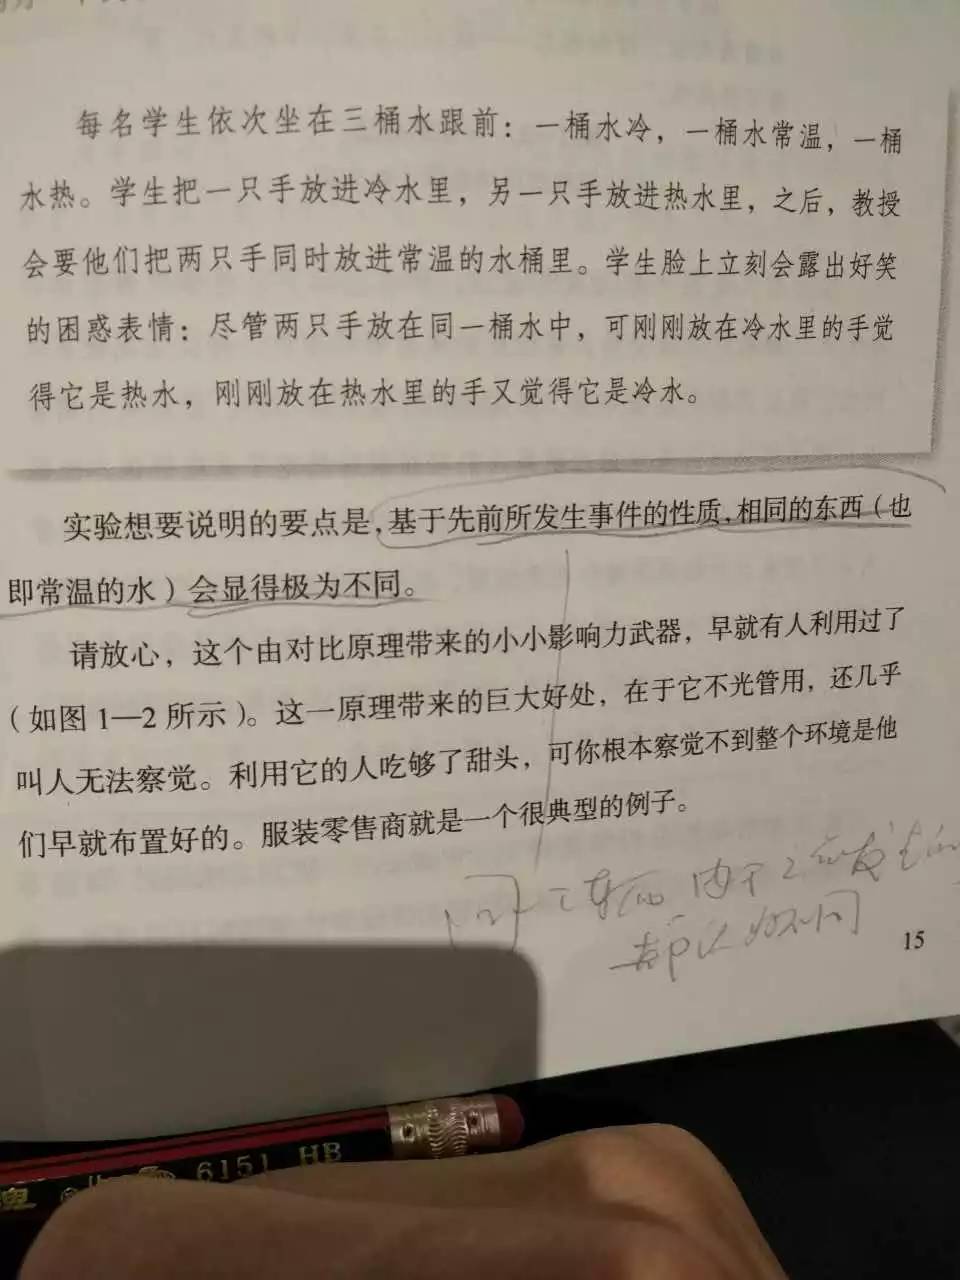 每名学生依次坐在三桶水跟前：一桶水冷，一桶水常温，一桶
水热。学生把一只手放进冷水里，另一只手放进热水里，之后，教授
会要他们把两只手同时放进常温的水桶里。学生脸上立刻会露出好笑
的困惑表情：尽管两只手放在同一桶水中，可刚刚放在冷水里的手觉
得它是热水，刚刚放在热水里的手又觉得它是冷水。
实验想要说明的要点是，基于先前所发生事件的性质，相同的东西（也
即常温的水）会显得极为不同。
请放心，这个由对比原理带来的小小影响力武器，早就有人利用过了
（如图1—2所示）。这一原理带来的巨大好处，在于它不光管用，还几乎
叫人无法察觉。利用它的人吃够了甜头，可你根本察觉不到整个环境是他
们早就布置好的。服装零售商就是一个很典型的例子。
同一东西 由于
不同
15
6151 HB